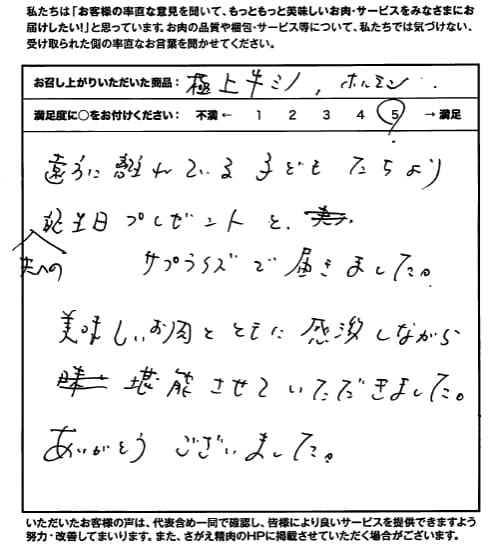 私たちは「お客様の率直な意見を聞いて、もっともっと美味しいお肉・サービスをみなさまにお
届けしたい!」と思っています。お肉の品質や梱包・サービス等について、私たちでは気づけない、
受け取られた側の率直なお言葉を聞かせてください。
お召し上がりいただいた商品: 極上牛ミノ, ホルモン
満足度に○をお付けください: 不満 ← 1 2 3 4 5 → 満足
遠方に離れている子どもたちより
夫への
誕生日プレゼントと、
サプライズで届きました。
美味しいお肉とともに感激しながら
堪能させていただきました。
ありがとうございました。
いただいたお客様の声は、代表含め一同で確認し、皆様により良いサービスを提供できますよう
努力・改善してまいります。また、さがえ精肉のHPに掲載させていただく場合がございます。